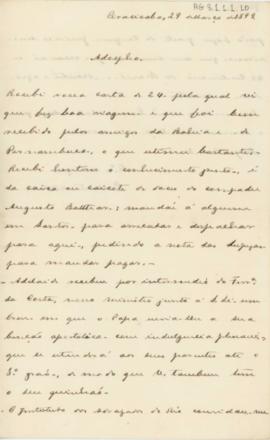 RG 3.1.1.1.10
Piracicaba, 29 Março de 1898
Adolpho.
Recebi vossa carta de 24, pela qual vi
que fez boa viagem e que foi bem
recebido pelos amigos da Bahia e de
Pernambuco, o que estimei bastante.
Recebi o conhecimento junto,
da caixa ou caixote de doces do compadre
Augusto ; mandei á alguem
em Santos, para arrecadar e despachar
para aqui, pedindo a nota das despezas
para mandar pagar. —
- Adelaide recebeu por intermedio do
da Costa, nosso ministro junto á S. Sé, um
em que o Papa envia-lhe a sua
benção apostolica com indulgencia plenaria,
que se estende aos seus parentes até o
3º grau, de modo que V. tambem tem
o seu quinhão. —
- O Instituto dos Advogados do Rio convidou-me